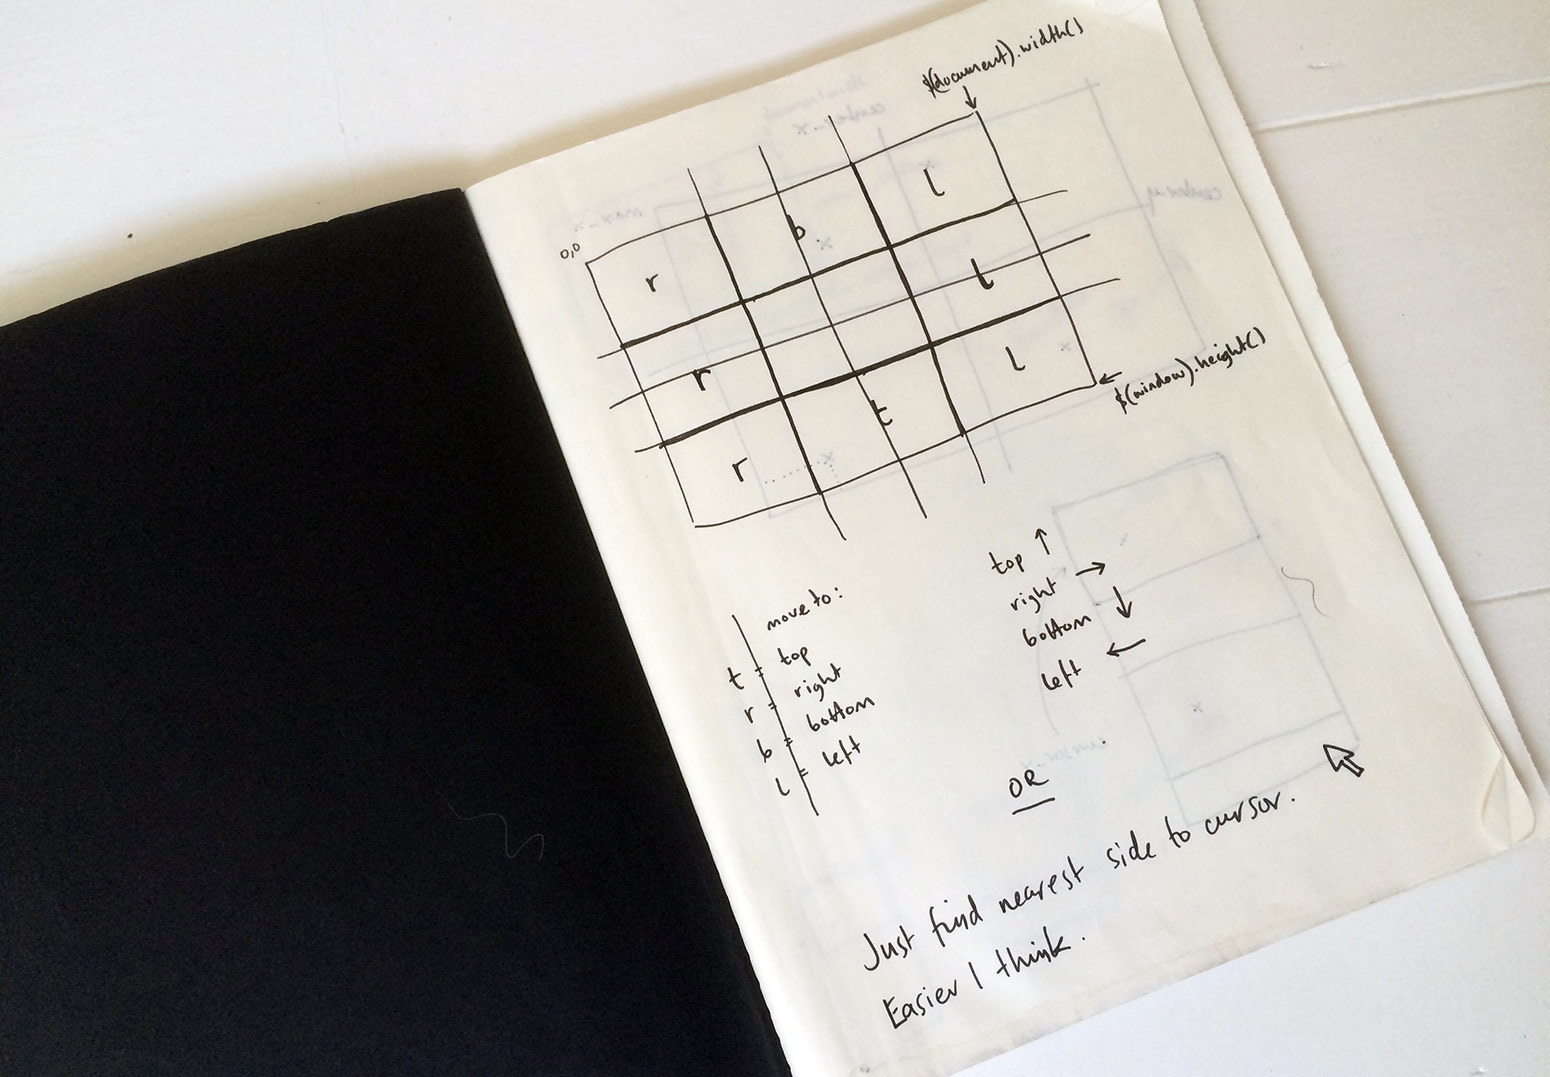 $(document).width()
0,0
r b l
r l
r t l
$(window).height()
move to:
t = top
r = right
b = bottom
l = left
top ↑
right →
bottom ↓
left ←
OR
Just find nearest side to cursor.
Easier I think.